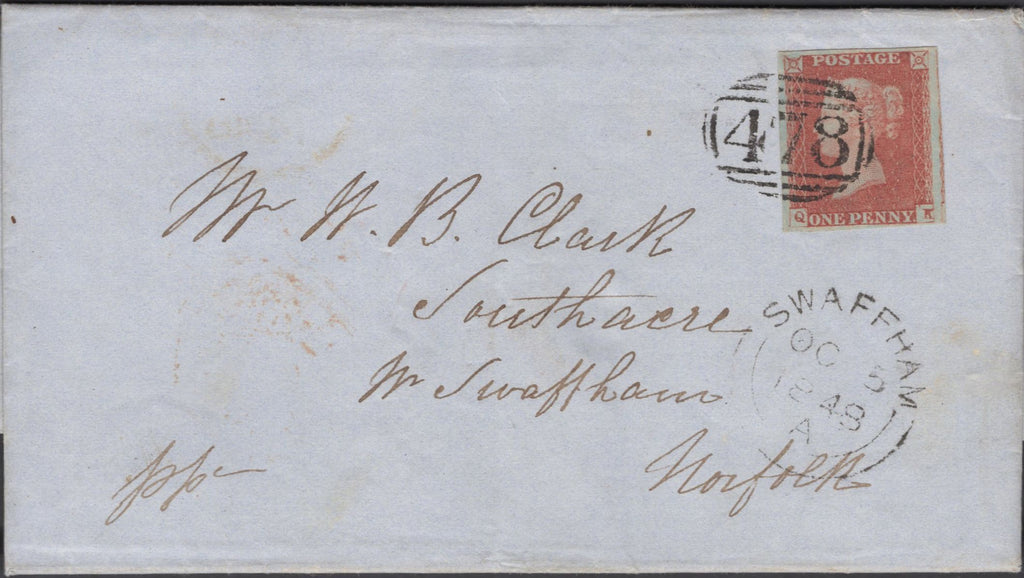 POSTAGE
478
Q ONE PENNY K
Mr W. B. Clark
Southacre
Nr Swaffham
Norfolk
pp
SWAFFHAM
OC 5
1848
A